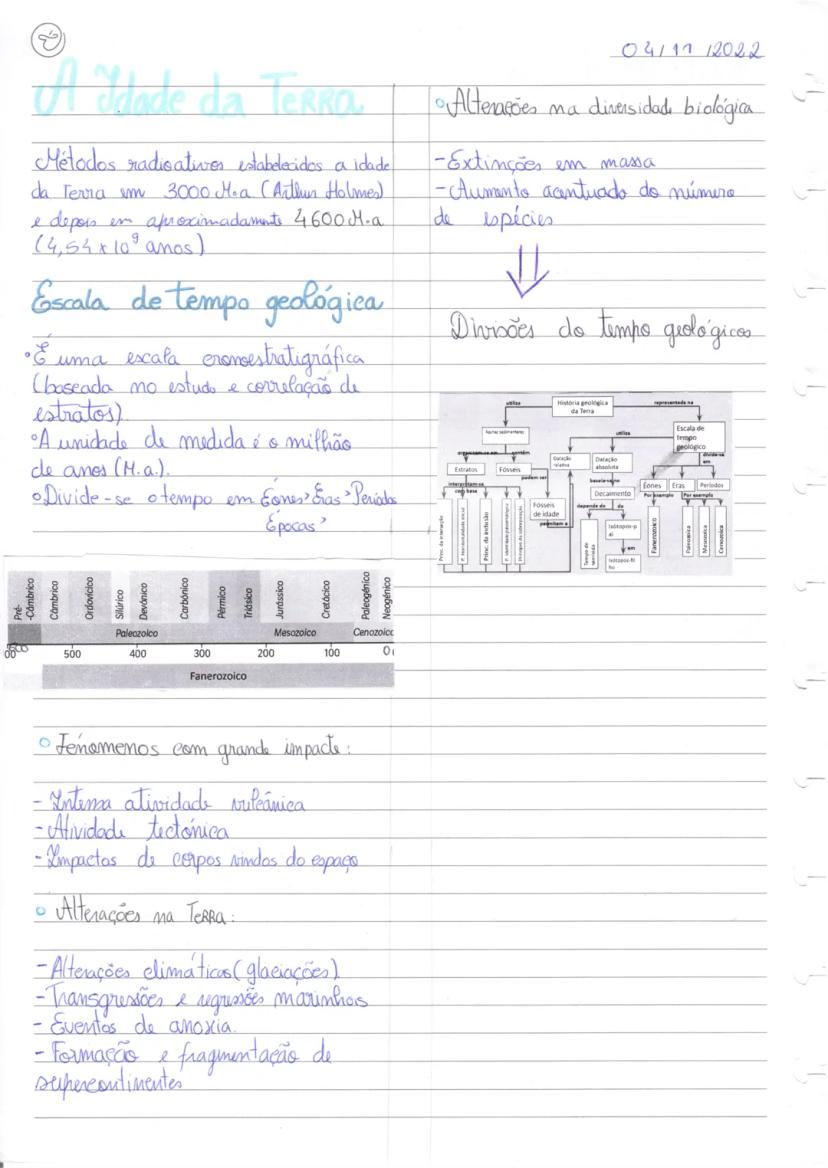 04/11/2022
A Idade da TERRA
Métodos radioativos estabelecidos a idade
da Terra em 3000 M.a (Arthur Holmes)
e depois em aproximadamente 4600 M.a
(4,54 x 10⁹ anos)
Escala de tempo geológica
É uma escala cronoestratigráfica
(baseada no estudo e correlação de
estratos).
A unidade de medida é o milhão
de anos (M.a.).
Divide-se o tempo em Éones > Eras > Períodos
Épocas >
Pré-
-Câmbrico
Câmbrico
Ordovícico
Silúrico
Devónico
Carbónico
Pérmico
Triásico
Jurássico
Cretácico
Paleogénico
Neogénico
Paleozoico Mesozoico Cenozoico
500 400 300 200 100 0
Fanerozoico
Fenómenos com grande impacte:
- Intensa atividade vulcânica
- Atividade tectónica
- Impactos de corpos vindos do espaço
Alterações na TERRA:
- Alterações climáticas (glaciações)
- Transgressões e regressões marinhas
- Eventos de anoxia.
- Formação e fragmentação de
supercontinentes
Alterações na diversidade biológica
- Extinções em massa
- Aumento acentuado do número
de espécies
⇓
Divisões do tempo geológicos
História geológica
da Terra
utiliza
representada na
Escala de
tempo
geológico
utiliza
divide-se
em
contém
Estratos
Fósseis
Datação
relativa
Datação
absoluta
baseia-se no
Decaimento
depende do
de
Éones
Eras
Períodos
Por exemplo
Por exemplo
interpretam-se
com base
podem ser
Fósseis
de idade
permitem a
Princ. da inclusão
Isótopos-p
ai
em
Isótopos-fil
ho
Fanerozoico
Paleozoica
Mesozoica
Cenozoica